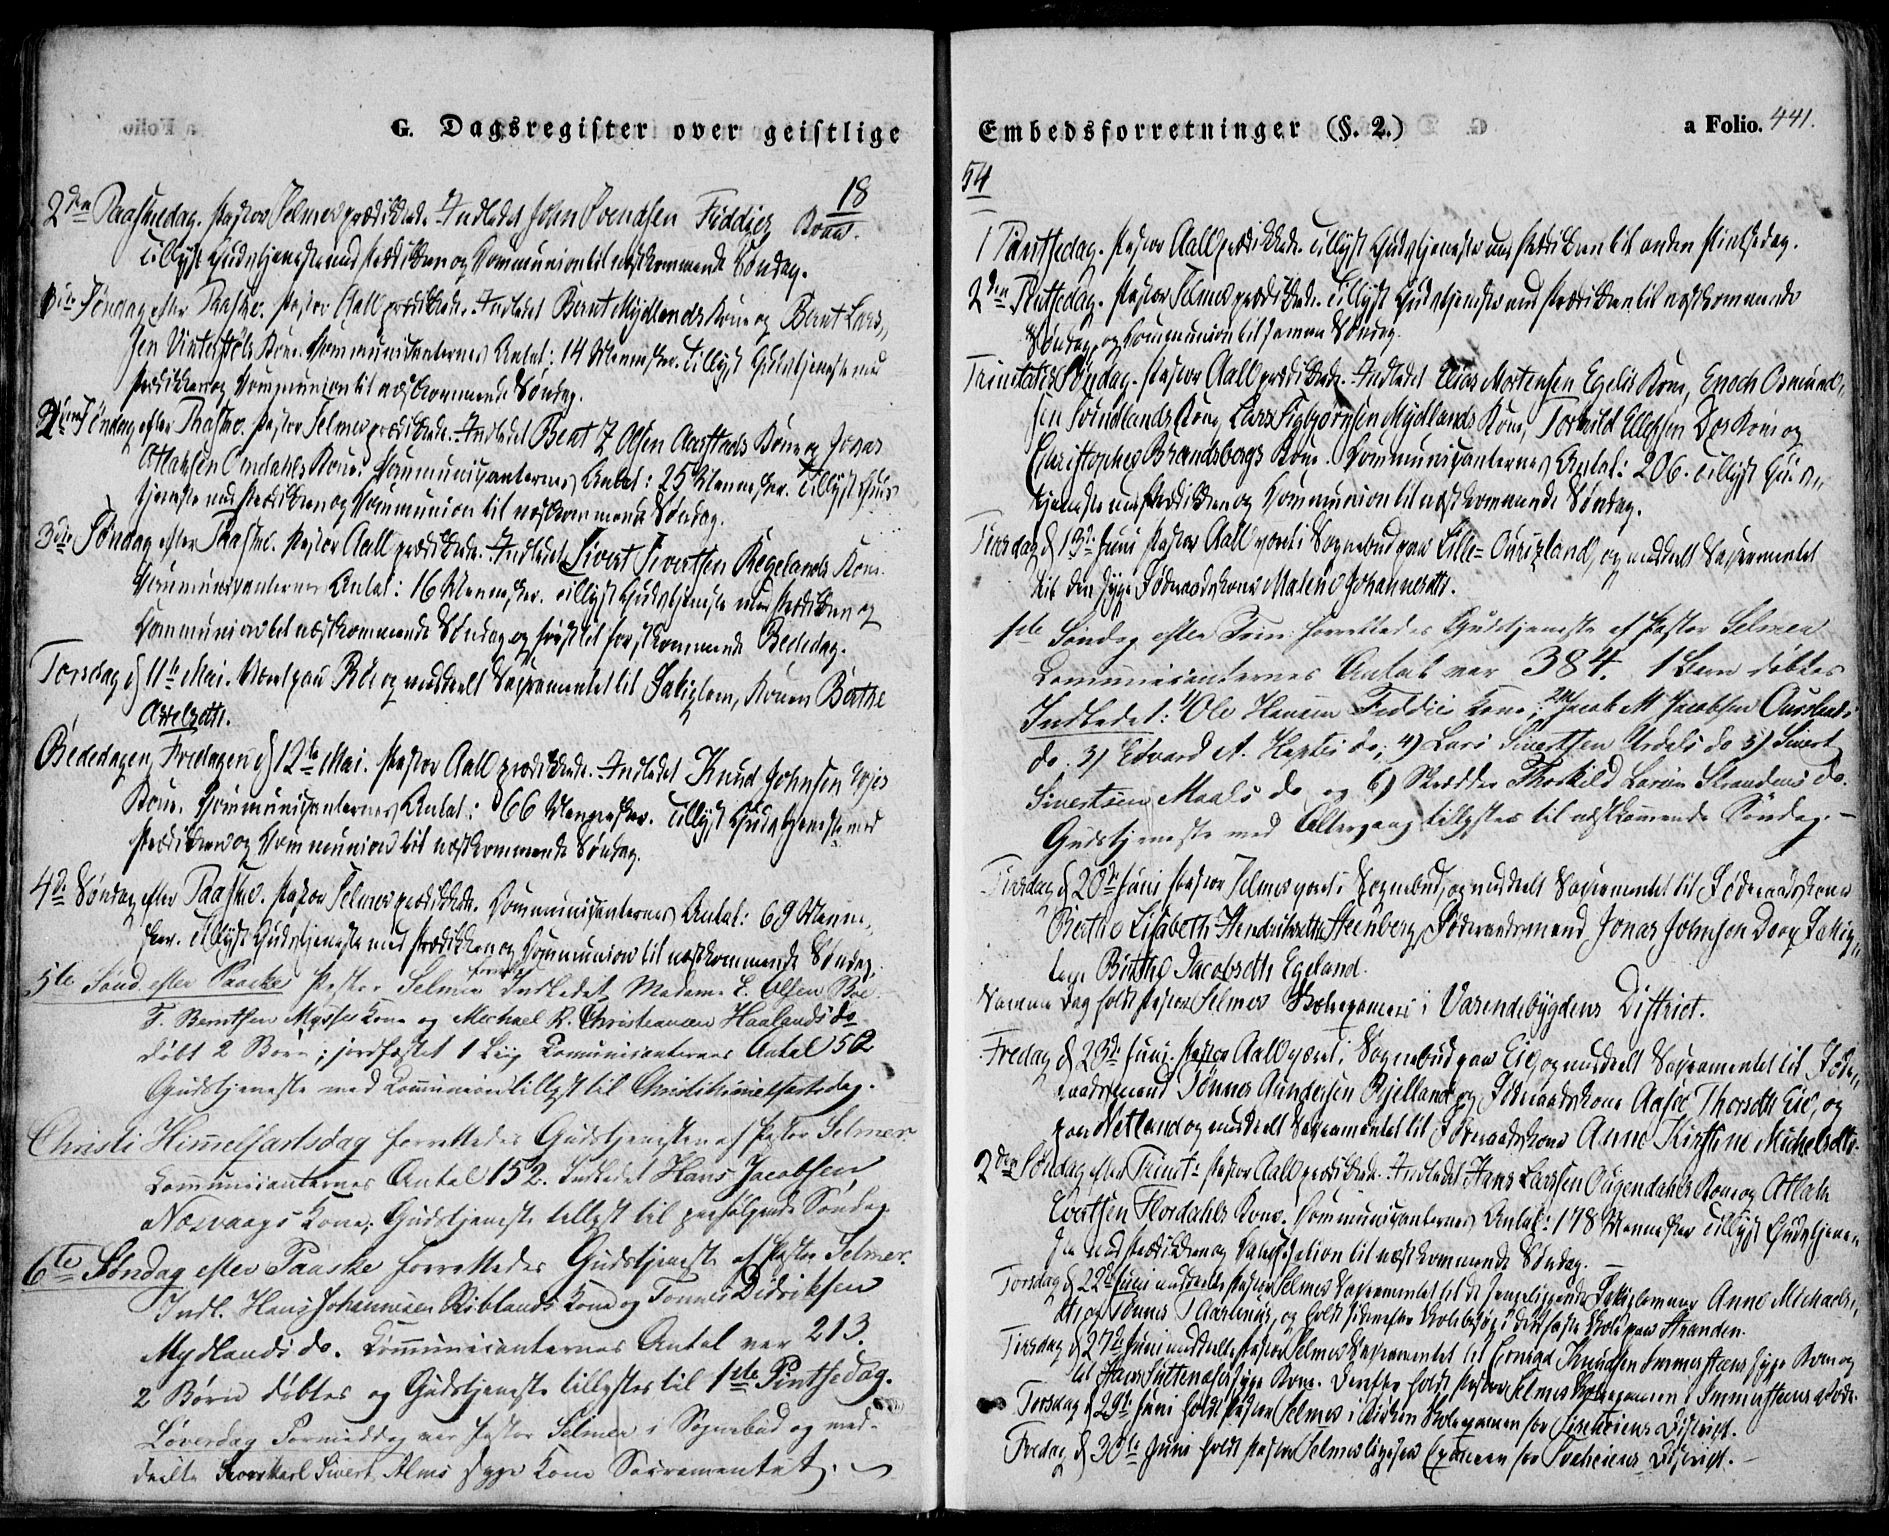 G. Dagsregister over geistlige
18
2den Paaskedag. Pastor Selmer prædikede. Indledet John Svendsen Feddies Kone.
Tillyst Gudstjeneste med Prædiken og Communion til næstkommende Søndag.
1ste Søndag efter Paaske. Pastor Aall prædikede. Indledet Bernt Mydlands Kone og Bernt Lars-
sen Vinterstøls Kone. Communicanternes Antal: 14 Mennesker. Tillyst Gudstjeneste med
Prædiken og Communion til næstkommende Søndag.
2den Søndag efter Paaske. Pastor Selmer prædikede. Indledet Bent Olsen Aarstads Kone og Jonas
Atlaksen Omdahls Kone. Communicanternes Antal: 25 Mennesker. Tillyst Guds-
tjeneste med Prædiken og Communion til næstkommende Søndag.
3die Søndag efter Paaske. Pastor Aall prædikede. Indledet Sivert Sivertsen Regelands Kone.
Communicanternes Antal: 16 Mennesker. Tillyst Gudstjeneste med Prædiken og
Communion til næstkommende Søndag og først til førstkommende Bededag.
Torsdag d. 11te Mai. Været paa Roe og meddeelt Sacramentet til Fattiglem, Konen Berthe
Axelsdttr.
Bededagen, Fredagen d. 12te Mai. Pastor Aall prædikede. Indledet Knud Johnsen
Kone. Communicanternes Antal: 66 Mennesker. Tillyst Gudstjeneste med
Prædiken og Communion til næstkommende Søndag.
4de Søndag efter Paaske. Pastor Selmer prædikede. Communicanternes Antal: 69 Menne-
sker. Tillyst Gudstjeneste med Prædiken og Communion til næstkommende Søndag.
5te Sønd. efter Paaske Pastor Selmer Indledet Madame E. Olsen Roe
T. Berntsen Mysses Kone og Michael R. Christiansen Haalands do
døbt 2 Børn; jordfæstet 1 Liig Communicanternes Antal 52
Gudstjeneste med Communion tillyst til Christi Himmelfartsdag.
Christi Himmelfartsdag forrettedes Gudstjenesten af Pastor Selmer.
Communicanternes Antal 152. Indledet Hans Jacobsen
Nesvaags Kone; Gudstjeneste tillyst til paafølgende Søndag
6te Søndag efter Paaske forrettedes Gudstjeneste af Pastor Selmer.
Indl. Hans Johannesen Riblands Kone og Tønnes Didriksen
Mydlands do. Communicanternes Antal var 213.
2 Børn døbtes og Gudstjeneste tillystes til 1ste Pintsedag.
Løverdag Formiddag var Pastor Selmer i Sognebud og med-
deelte Sivert Alms syge Kone Sacramentet.
Embedsforretninger (§. 2.)
a Folio. 441.
54
1 Pintsedag. Pastor Aall prædikede. Tillyst Gudstjeneste med Prædiken til anden Pintsedag.
2den Pintsedag. Pastor Selmer prædikede. Tillyst Gudstjeneste med Prædiken til næstkommende
Søndag, og Communion til samme Søndag.
Trinitatis Søndag. Pastor Aall prædikede. Indledet Elias Mortensen Egelis Kone, Enoch Osmund-
sen Svindlands Kone, Lars Sigbjørnsen Mydlands Kone, Torkild Ellefsen Dos Kone og
Christopher Brandsbergs Kone. Communicanternes Antal: 206. Tillyst Guds-
tjeneste med Prædiken og Communion til næstkommende Søndag.
Tirsdag d. 13de Juni Pastor Aall været i Sognebud paa Lille-Oursland, og meddeelt Sacramentet
til den syge Føderaadskone Malene Johannesdtt.
1ste Søndag efter Trin: forrettedes Gudstjeneste af Pastor Selmer
Communicanternes Antal var 384. 1 Barn døbtes
Indledet: 1) Ole Hansen Feddies Kone, 2) Jacob M Jacobsen Ouslands
do. 3) Edvard A. Haptes do; 4) Lars Sivertsen Urdals do 5) Sivert
Sivertsen Maals do og 6) Skrædder Thorkild Larsen Strandens do.
Gudstjeneste med Altergang tillystes til næstkommende Søndag.
Tirsdag d. 20de Juni Pastor Selmer været i Sognebud, og meddeelt Sacramentet til Føderaadskone
Berthe Lisabeth Hendriksdtt Steenberg, Føderaadsmand Jonas Johnsen Do og Fattig-
lem Birthe Jacobsdtt Egeland.
Samme Dag holdt Pastor Selmer Skoleexamen i Varendebygdens District.
Fredag d. 23de Juni. Pastor Aall været i Sognebud paa Eie, og meddeelt Sacramentet til Føde-
raadsmand Tønnes Gundersen Bjelland og Føderaadskone Aasie Thorsdtt Eie, og
paa Netland og meddeelt Sacramentet til Føderaadskone Anne Kirstine Michelsdtt.
2den Søndag efter Trinit. Pastor Aall prædikede. Indledet Hans Larssen Ougendahls Kone og Atlak
Evertsen Flordahls Kone. Communicanternes Antal: 178 Mennesker Tillyst Gudstjene-
ste med Prædiken og til næstkommende Søndag.
Torsdag d. 22de Juni meddeelte Pastor Selmer Sacramentet til de sengeliggende Fattiglemmer Anne Michels-
dtt og Tønnes Aarstad, og holdt sidenefter Skolebesøg i den faste Skole paa Stranden.
Tirsdag d. 27de Juni meddeelte Pastor Selmer Sacramentet til Knudsen Immerstens syge Kone og
til Hans syge Kone. Derefter holdt Pastor Selmer Skoleexamen i Immerstens Rode.
Torsdag d. 29de Juni holdt Pastor Selmer i Kirken Skoleexamen for District.
Fredag d. 30te Juni holdt Pastor Selmer ligesaa Examen for District.